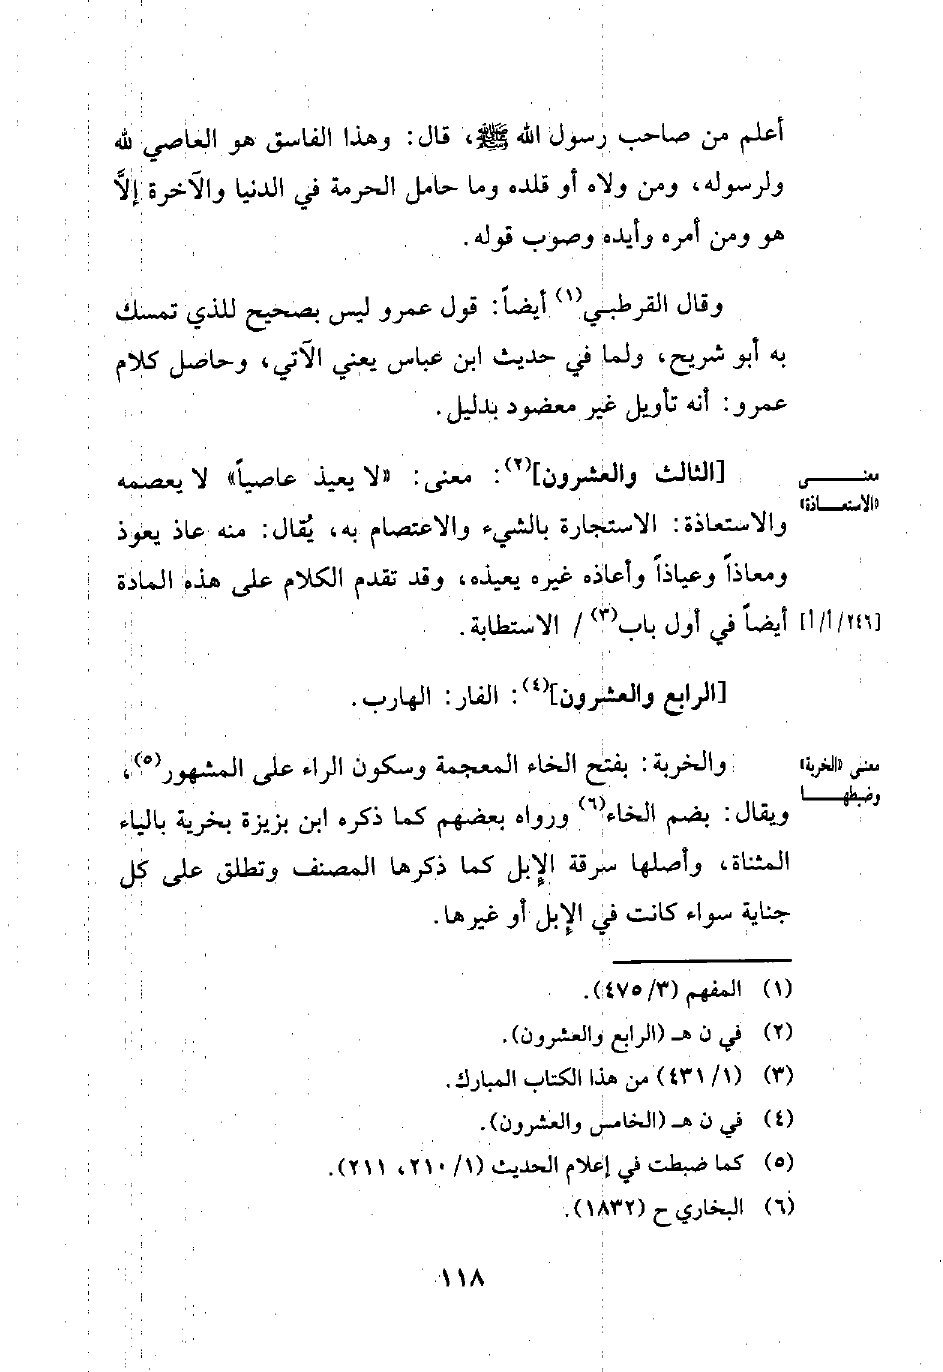 أعلم من صاحب رسول الله ﷺ، قال: وهذا الفاسق هو العاصي لله
ولرسوله، ومن ولاه أو قلده وما حامل الحرمة في الدنيا والآخرة إلاَّ
هو ومن أمره وأيده وصوب قوله.
وقال القرطبي(١) أيضاً: قول عمرو ليس بصحيح للذي تمسك
به أبو شريح، ولما في حديث ابن عباس يعني الآتي، وحاصل كلام
عمرو: أنه تأويل غير معضود بدليل.
معنى
«الاستعاذة»
[الثالث والعشرون](٢): معنى: «لا يعيذ عاصياً» لا يعصمه
والاستعاذة: الاستجارة بالشيء والاعتصام به، يُقال: منه عاذ يعوذ
ومعاذاً وعياذاً وأعاذه غيره يعيذه، وقد تقدم الكلام على هذه المادة
[٢٤٦/أ/أ] أيضاً في أول باب(٣) / الاستطابة.
[الرابع والعشرون](٤): الفار: الهارب.
معنى «الخربة»
وضبطها
والخربة: بفتح الخاء المعجمة وسكون الراء على المشهور(٥)،
ويقال: بضم الخاء(٦) ورواه بعضهم كما ذكره ابن بزيزة بخرية بالياء
المثناة، وأصلها سرقة الإبل كما ذكرها المصنف وتطلق على كل
جناية سواء كانت في الإبل أو غيرها.
(١) المفهم (٣/ ٤٧٥).
(٢) في ن هـ (الرابع والعشرون).
(٣) (١/ ٤٣١) من هذا الكتاب المبارك.
(٤) في ن هـ (الخامس والعشرون).
(٥) كما ضبطت في إعلام الحديث (١/ ٢١٠، ٢١١).
(٦) البخاري ح (١٨٣٢).
١١٨